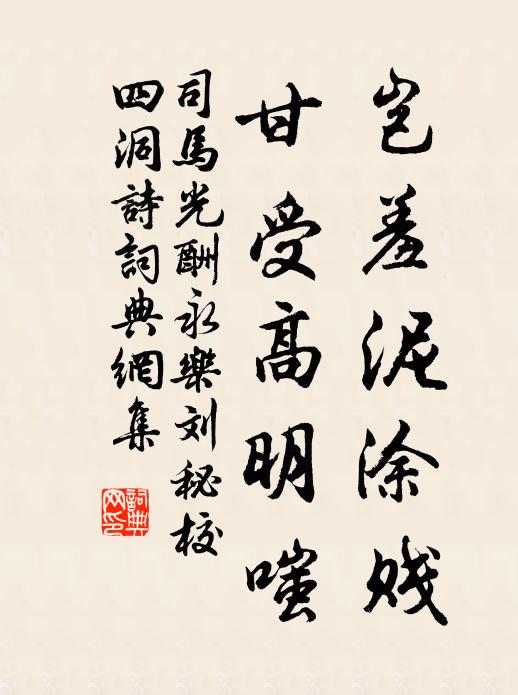 岂羞泥涂贱
甘受高明嗤
司馬光酬永樂刘秘校
四洞詩詞典網集
詞典网印